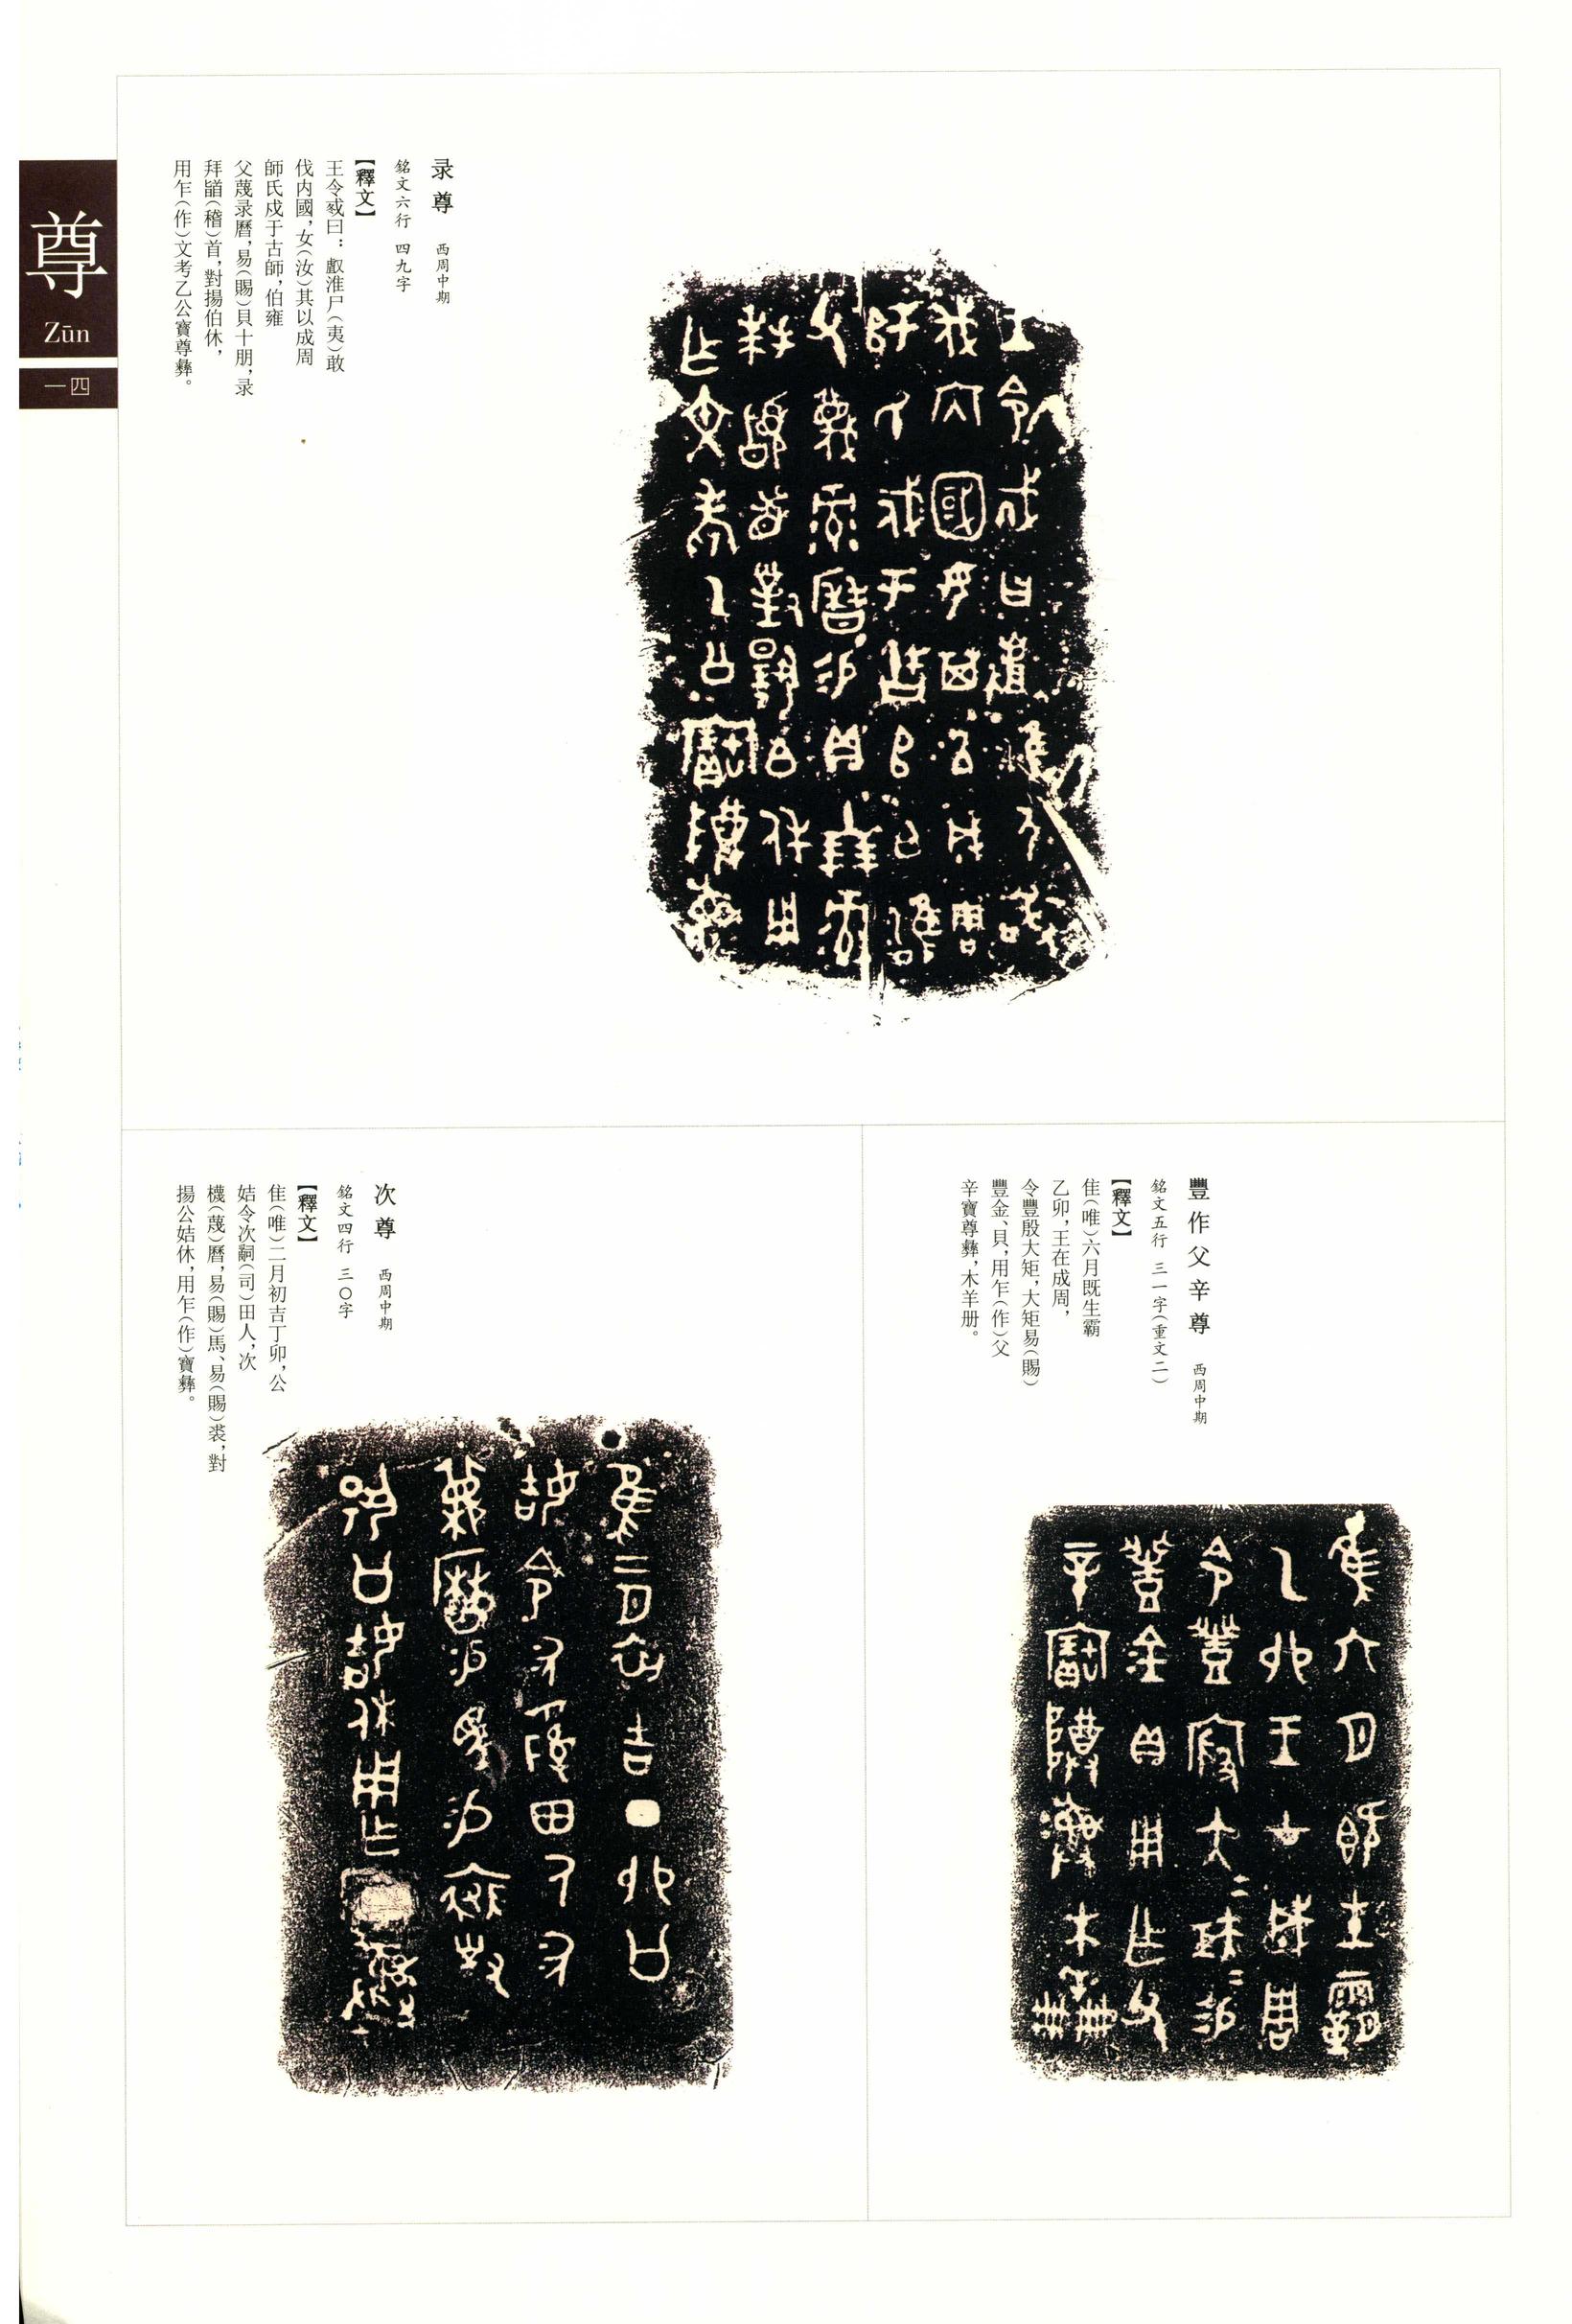 尊
Zūn
一四
录尊 西周中期
銘文六行 四九字
【釋文】
王令㦰曰：𠭯淮尸（夷）敢
伐内國，女（汝）其以成周
師氏戍于古師，伯雍
父蔑录曆，易（賜）貝十朋，录
拜䭫（稽）首，對揚伯休，
用乍（作）文考乙公寶尊彝。
豐作父辛尊 西周中期
銘文五行 三一字（重文二）
【釋文】
隹（唯）六月既生霸
乙卯，王在成周，
令豐殷大矩，大矩易（賜）
豐金、貝，用乍（作）父
辛寶尊彝，木羊册。
次尊 西周中期
銘文四行 三〇字
【釋文】
隹（唯）二月初吉丁卯，公
姞令次嗣（司）田人，次
櫗（蔑）曆，易（賜）馬、易（賜）裘，對
揚公姞休，用乍（作）寶彝。